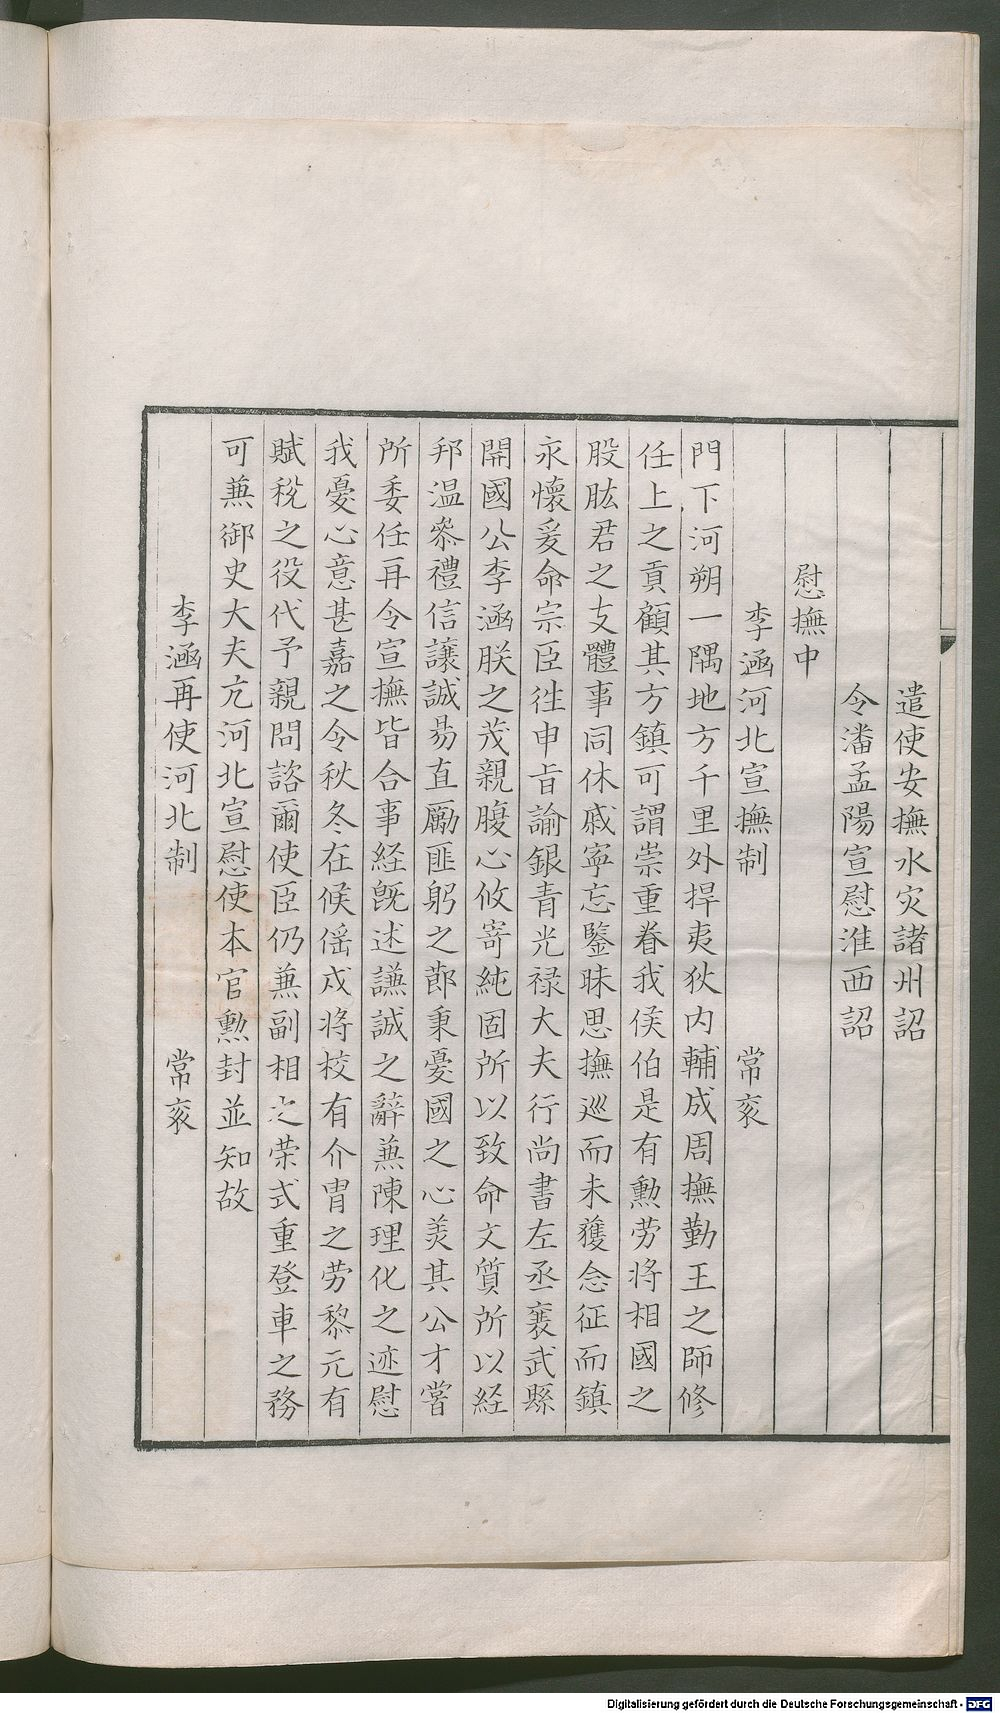 遣使安撫水灾諸州詔
令潘孟陽宣慰淮西詔
慰撫中
李涵河北宣撫制　常衮
門下河朔一隅地方千里外捍夷狄内輔成周撫勤王之師修
任上之貢顧其方鎮可謂崇重眷我侯伯是有勲劳将相國之
股肱君之支體事同休戚寜忘鑒昧思撫巡而未獲念征而鎮
永懷爰命宗臣往申旨諭銀青光禄大夫行尚書左丞襄武縣
開國公李涵朕之茂親腹心攸寄純固所以致命文質所以経
邦温恭禮信讓誠昜直勵匪躬之莭秉憂國之心羙其公才嘗
所委任再令宣撫皆合事経旣述謙誠之辭蕪陳理化之迹慰
我憂心意甚嘉之令秋冬在候傜戍将校有介胄之劳黎元有
賦稅之役代予親問諮爾使臣仍蕪副相之荣式重登車之務
可蕪御史大夫充河北宣慰使本官勲封並知故
李涵再使河北制　常衮
Digitalisierung gefördert durch die Deutsche Forschungsgemeinschaft - DFG